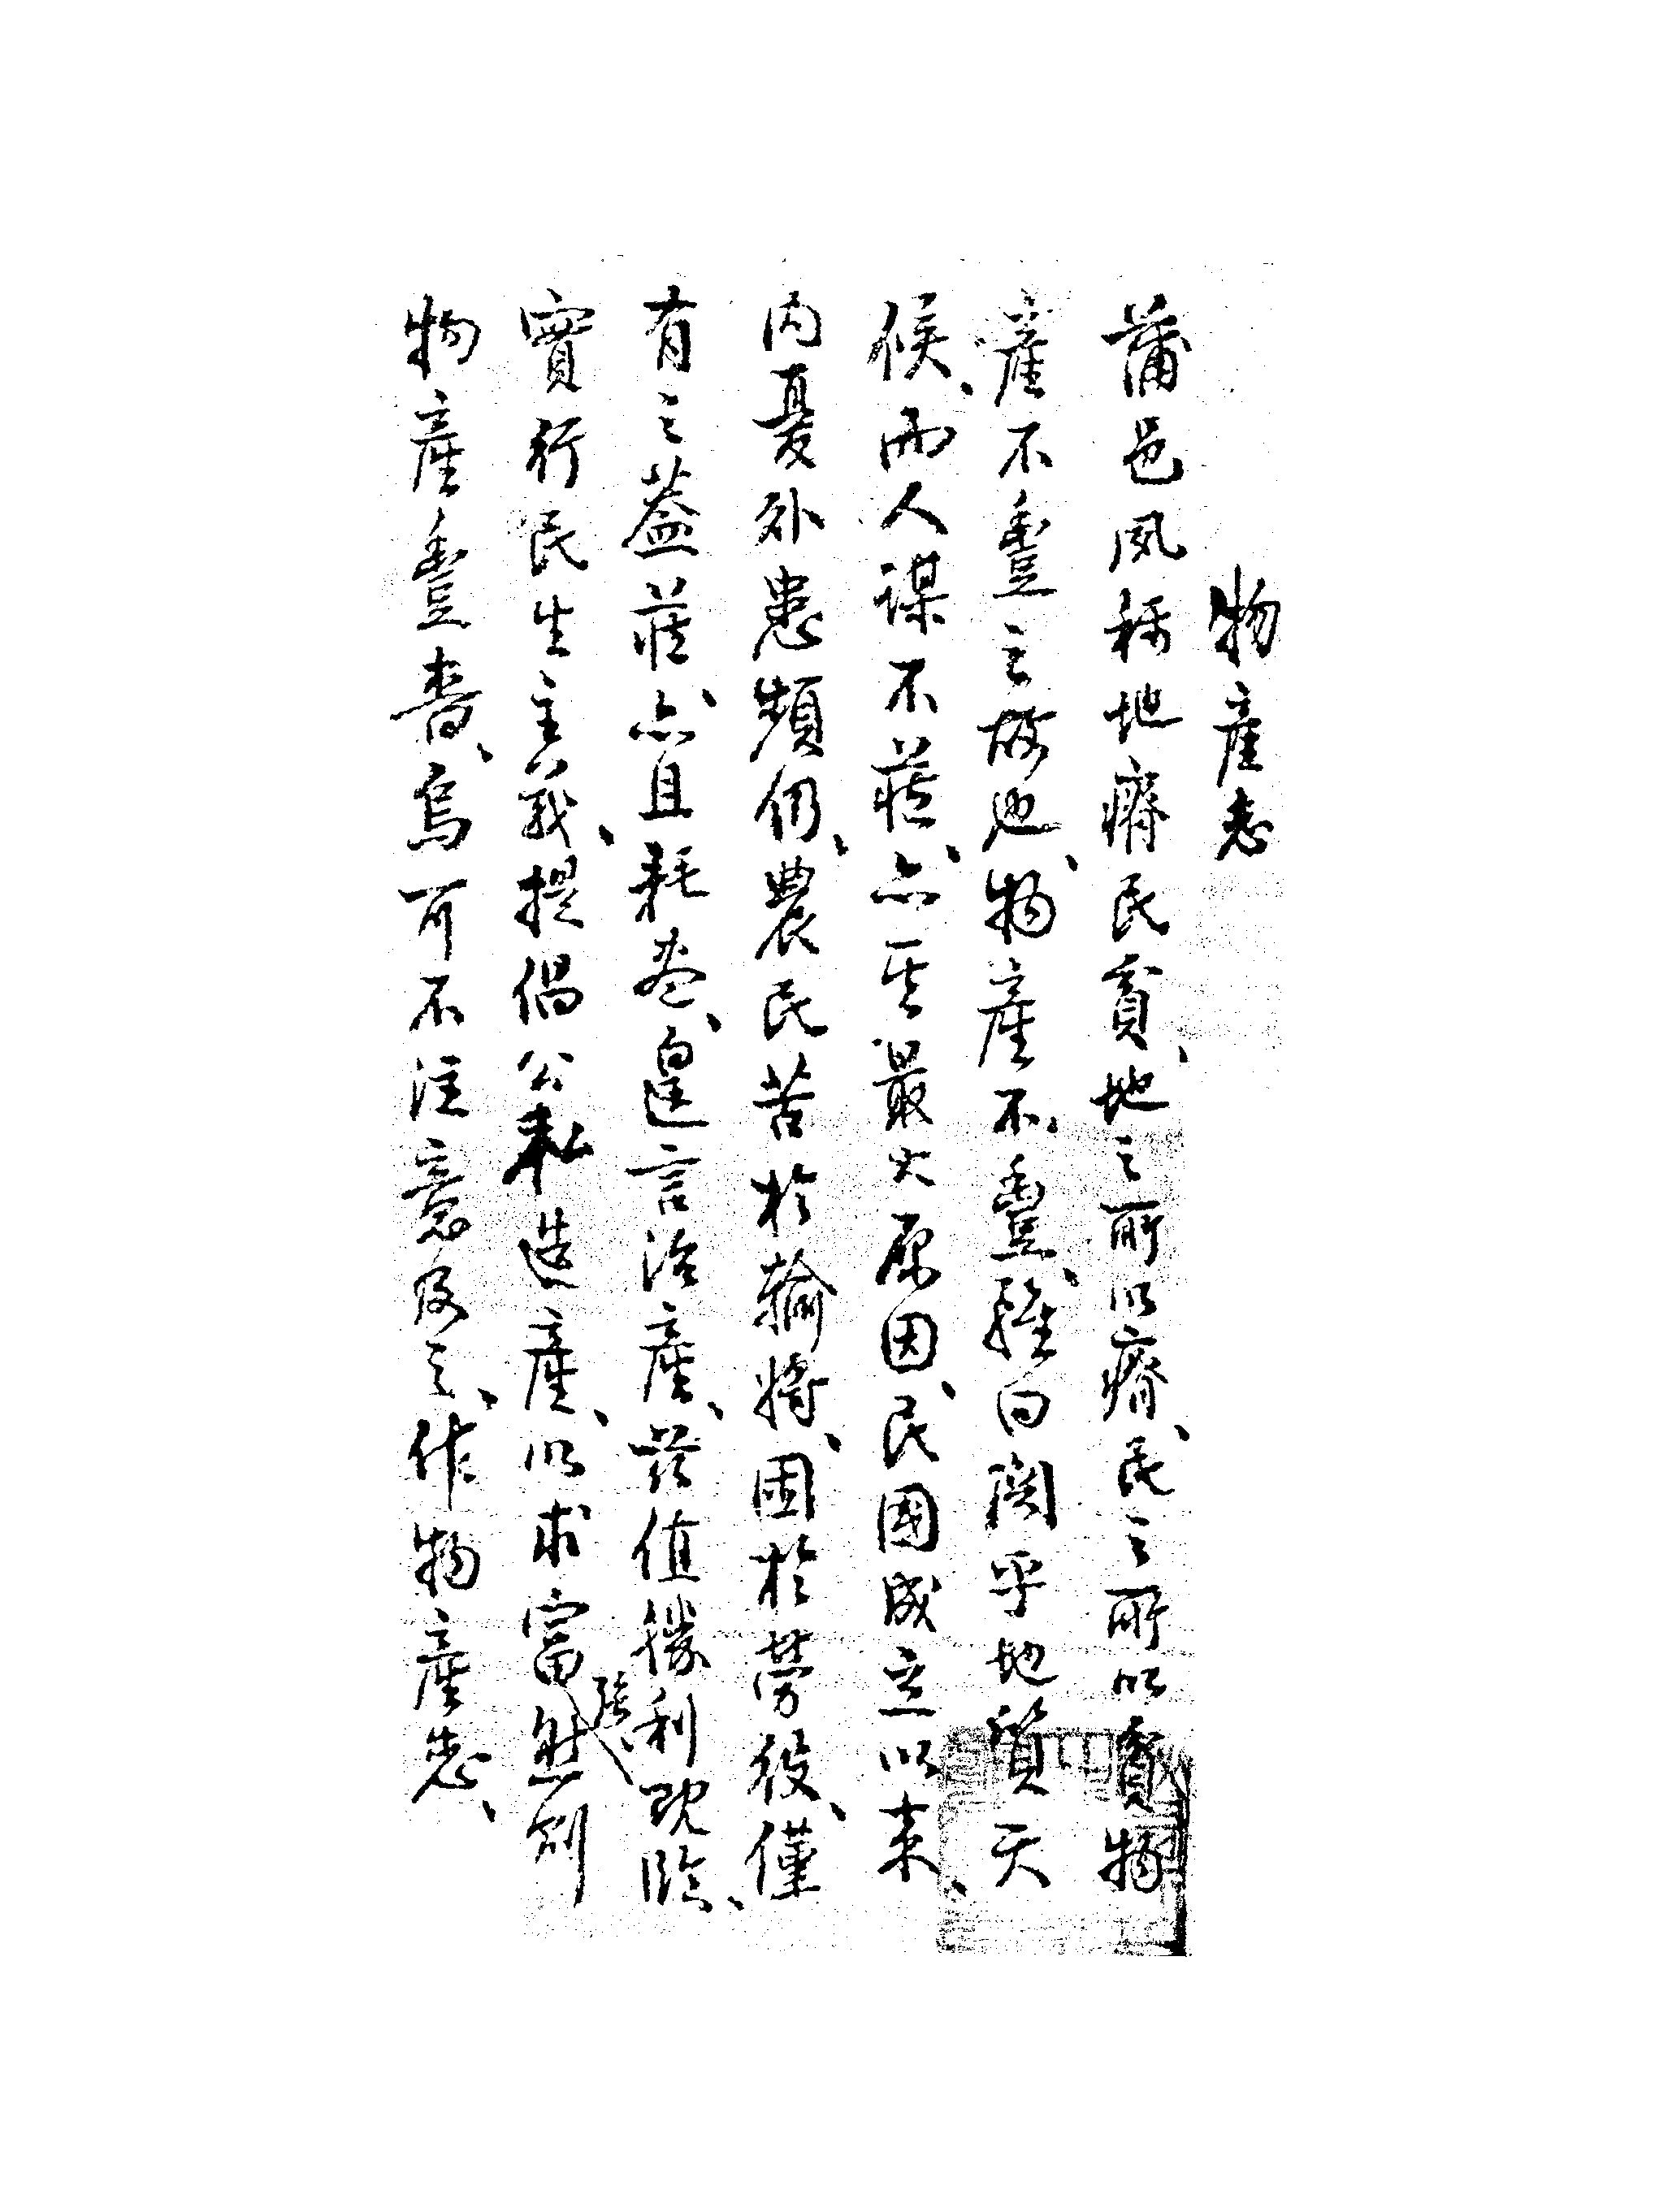 物產志
蒲邑夙稱地瘠民貧、地之所以瘠、民之所以貧、物
產不豐之故也、物產不豐、雖曰關乎地質天
候、而人謀不臧、亦其最大原因、民國成立以來、
內憂外患頻仍、農民苦於輸將、困於勞役、僅
有之蓋藏、亦且耗盡、遑言治產、茲值勝利既臨、
實行民生主義、提倡公私造產、以求富強、然則
物產豐嗇、烏可不注意及之、作物產志、